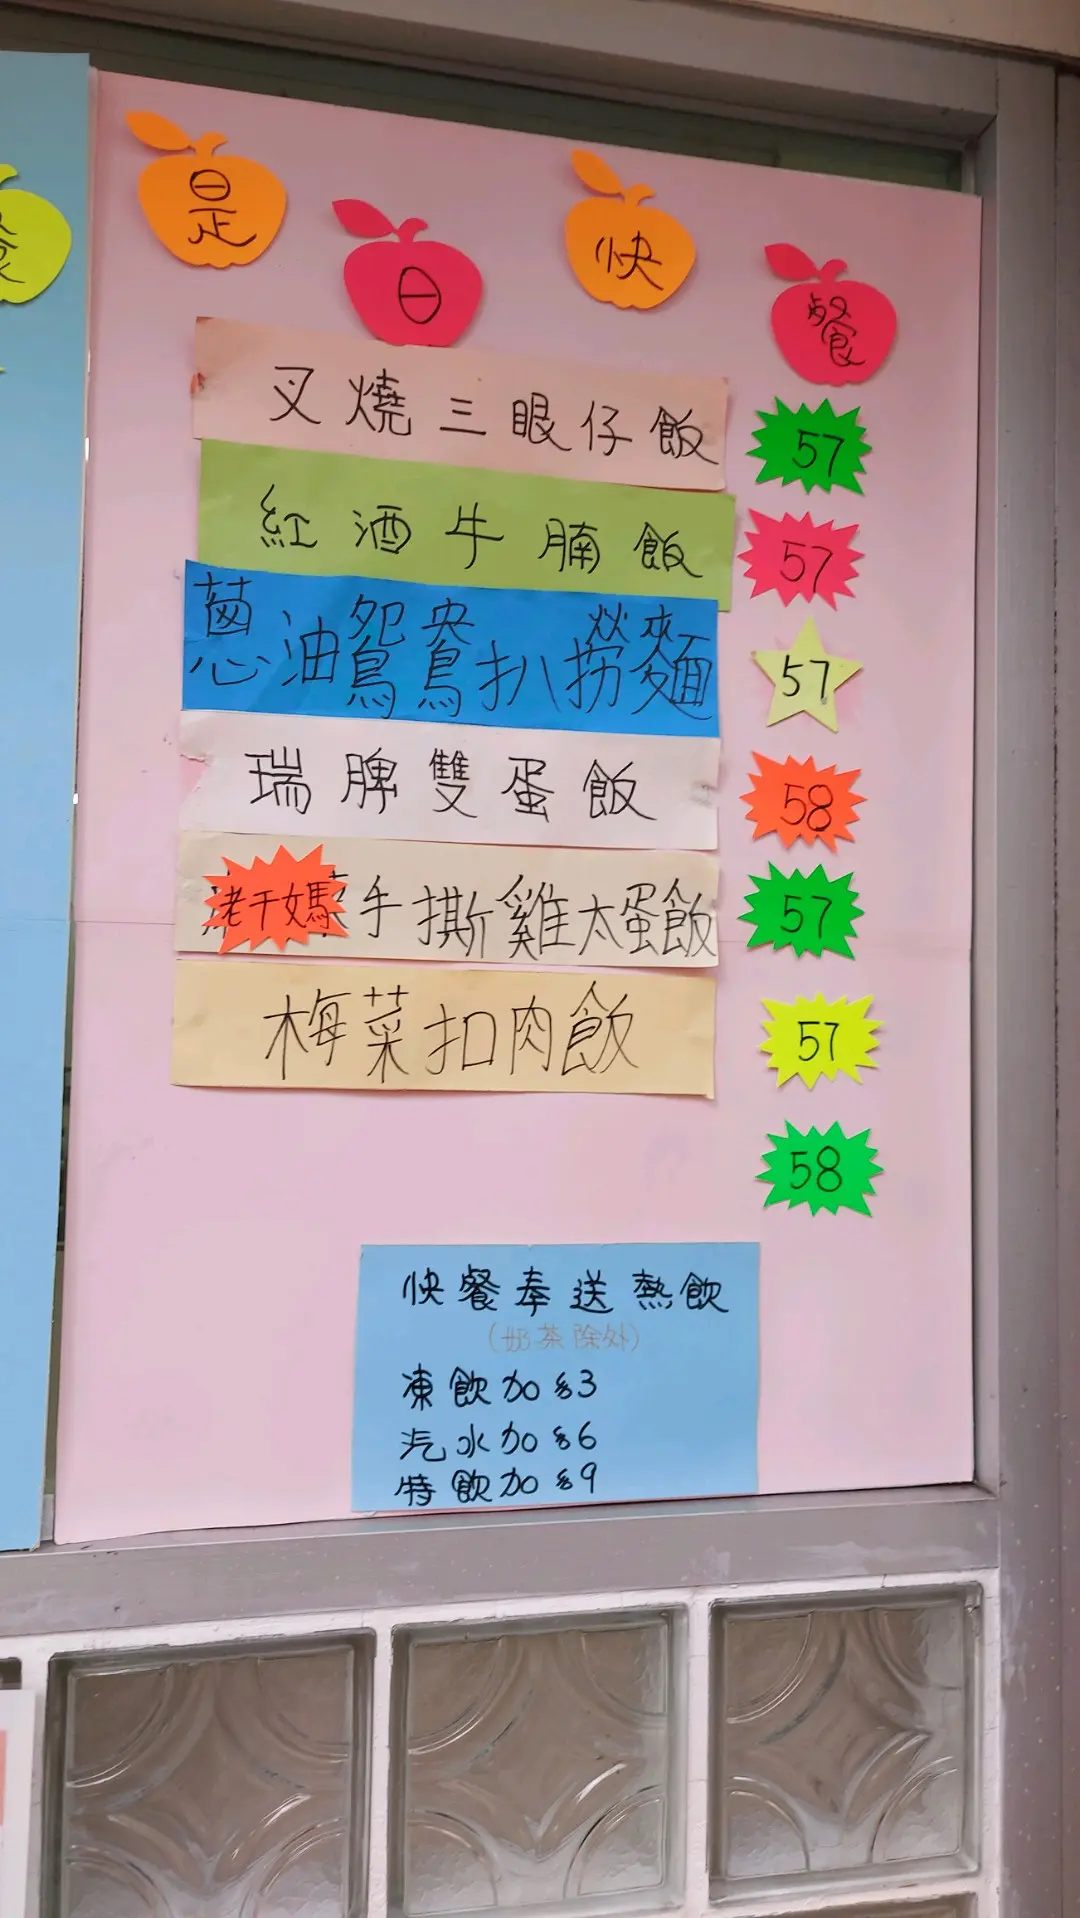 是日快餐
叉燒三眼仔飯 57
紅酒牛腩飯 57
蔥油鴛鴦扒撈麵 57
瑞脾雙蛋飯 58
老干媽手撕雞太蛋飯 57
梅菜扣肉飯 57
58
快餐奉送熱飲
(奶茶除外)
凍飲加$3
汽水加$6
特飲加$9